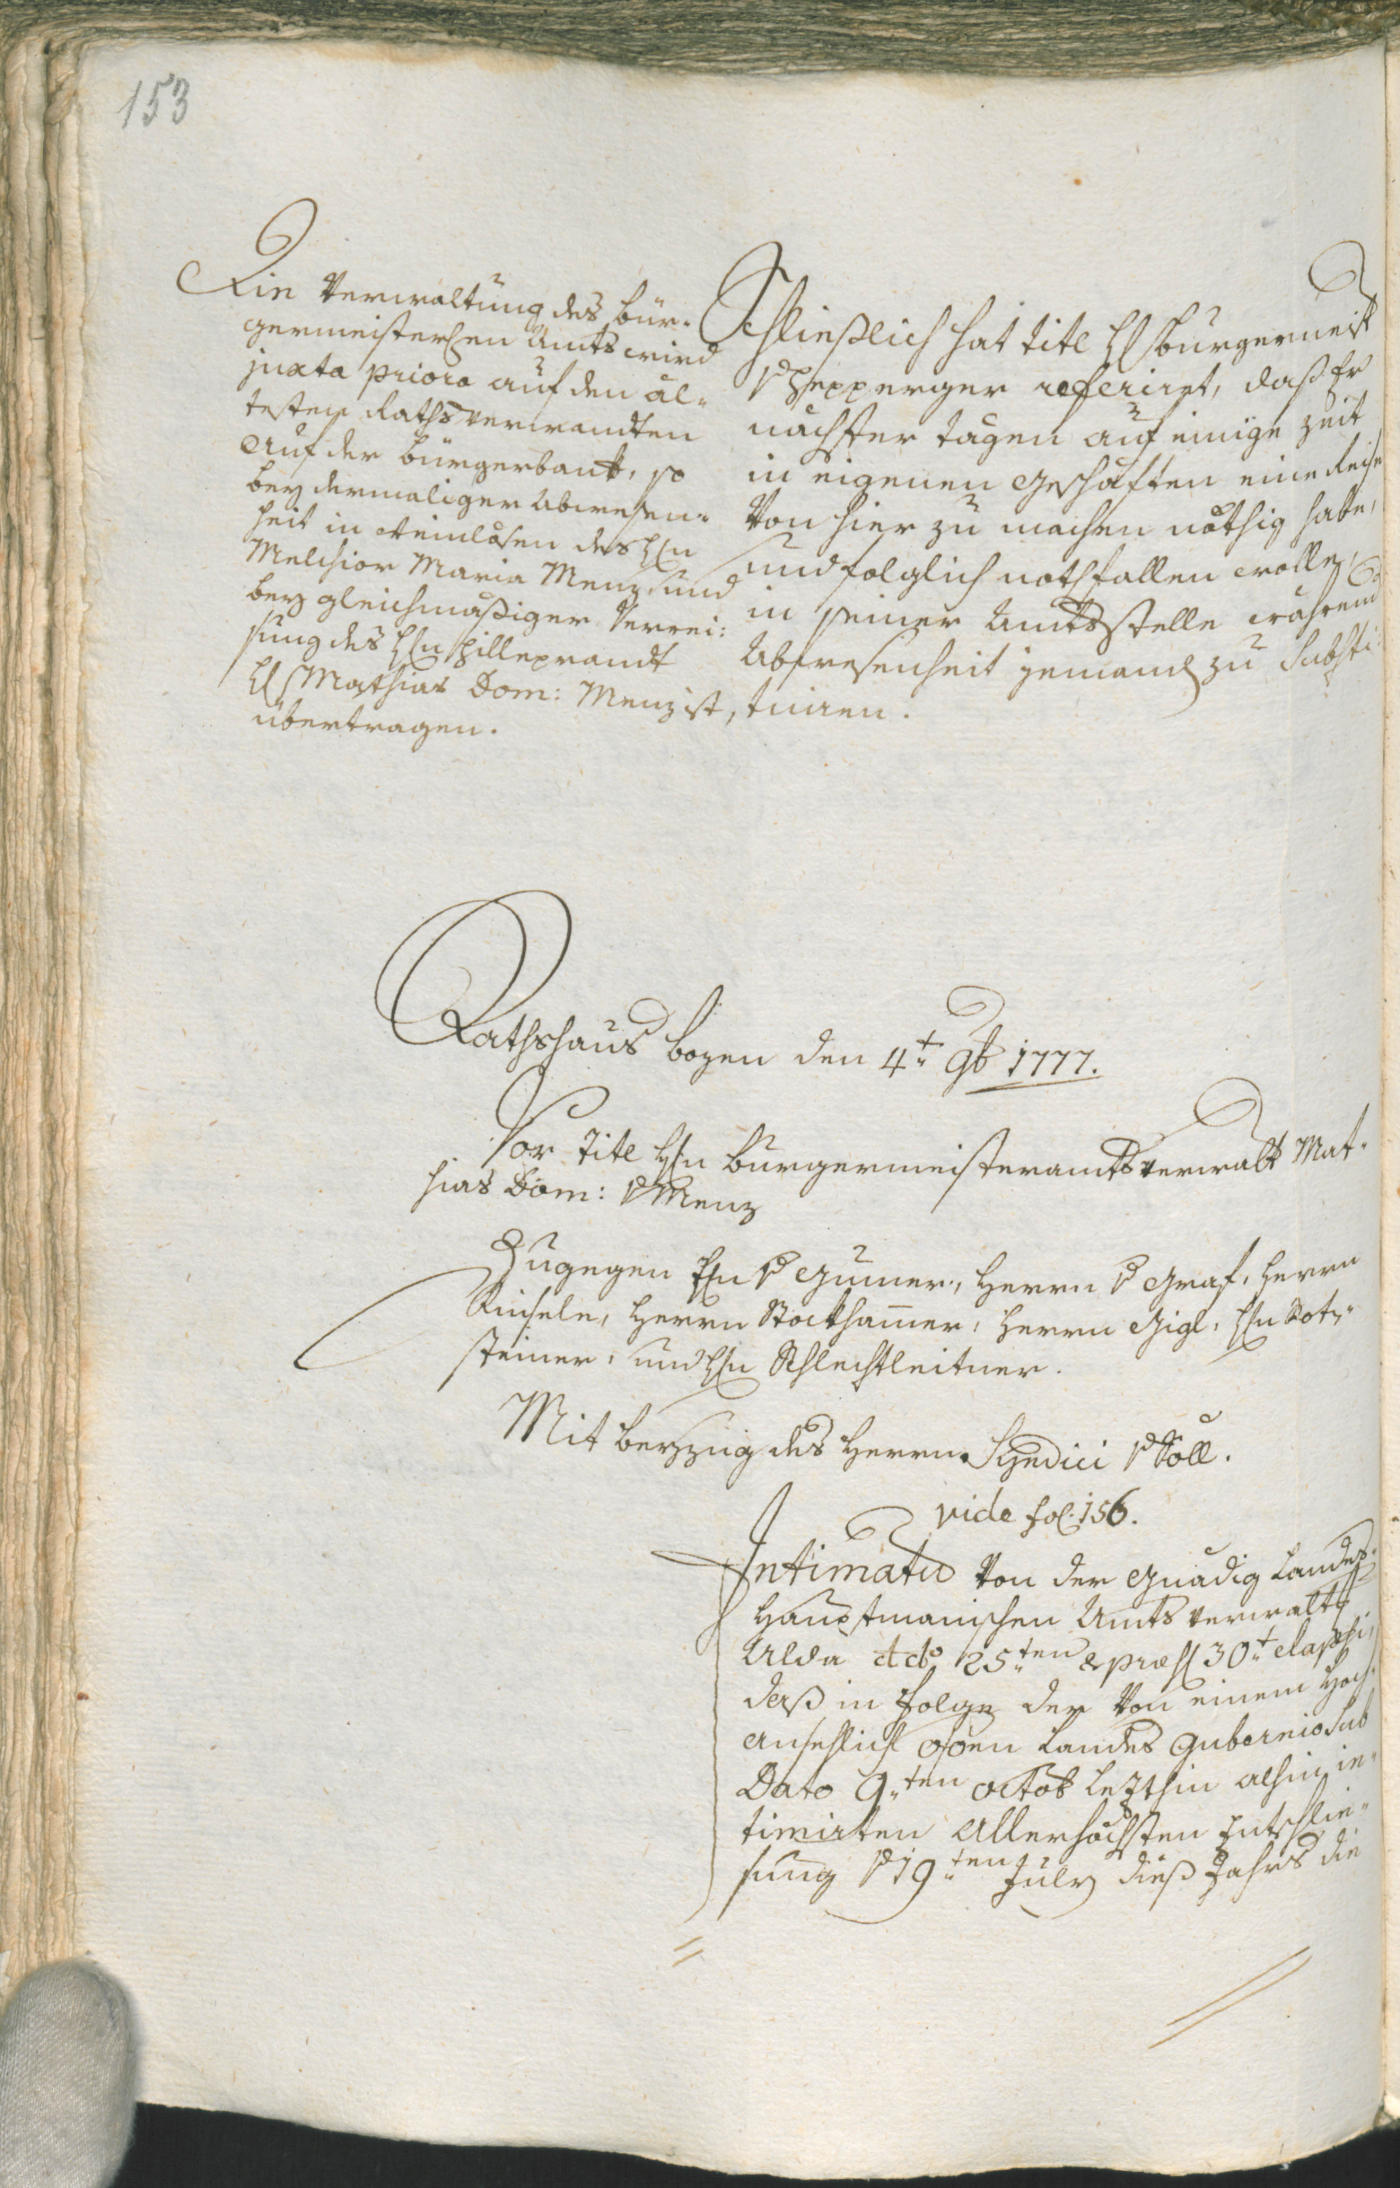 153
Die Verwaltung des bür-
germeisterlen Amts wird
juxta priora auf den äl-
testen Rathsverwandten
auf der Bürgerbank, so
bey dermaliger Abwesen-
heit in des Hn
Melchior Maria Menz, und
bey gleichmäßiger Verrei-
sung des Hn Hilleprandt
H Mathias Dom: Menz ist,
übertragen.
Schließlich hat tite H burgermeist
v Pepperger referiret, daß Er
nächster tägen auf einige zeit
in eigenen Geschäften eine Reise
von hier zu machen nöthig habe,
und folglich nothfallen wolle,
in seiner Amtsstelle während
Abwesenheit jemand zu substi-
tuiren.
Rathshaus bozen den 4t 9b 1777.
Vor tite Hn burgermeisteramtsverwalt Mat-
hias Dom: v Menz
Zugegen Hn v Gumer, Herrn v Graf, Herrn
Kinsele, Herrn Stockhamer, Herrn Gigl, Hn Rot-
steiner, und Hn Schlechtleitner.
Mit beyzug des Herrn Syndici v Söll.
vide fol. 156.
Intimatū von der Gnädig Landes-
hauptmanischen Amts verwaltg
Alda ddo 25ten & præs 30t elapsi,
daß in Folge der von einem Hoch-
ansehlich oöen Landes Gubernio sub
Dato 9ten octob lezthin alhin in-
timirten Allerhöchsten Entschlie-
sung v 19ten July dieß Jahrs die